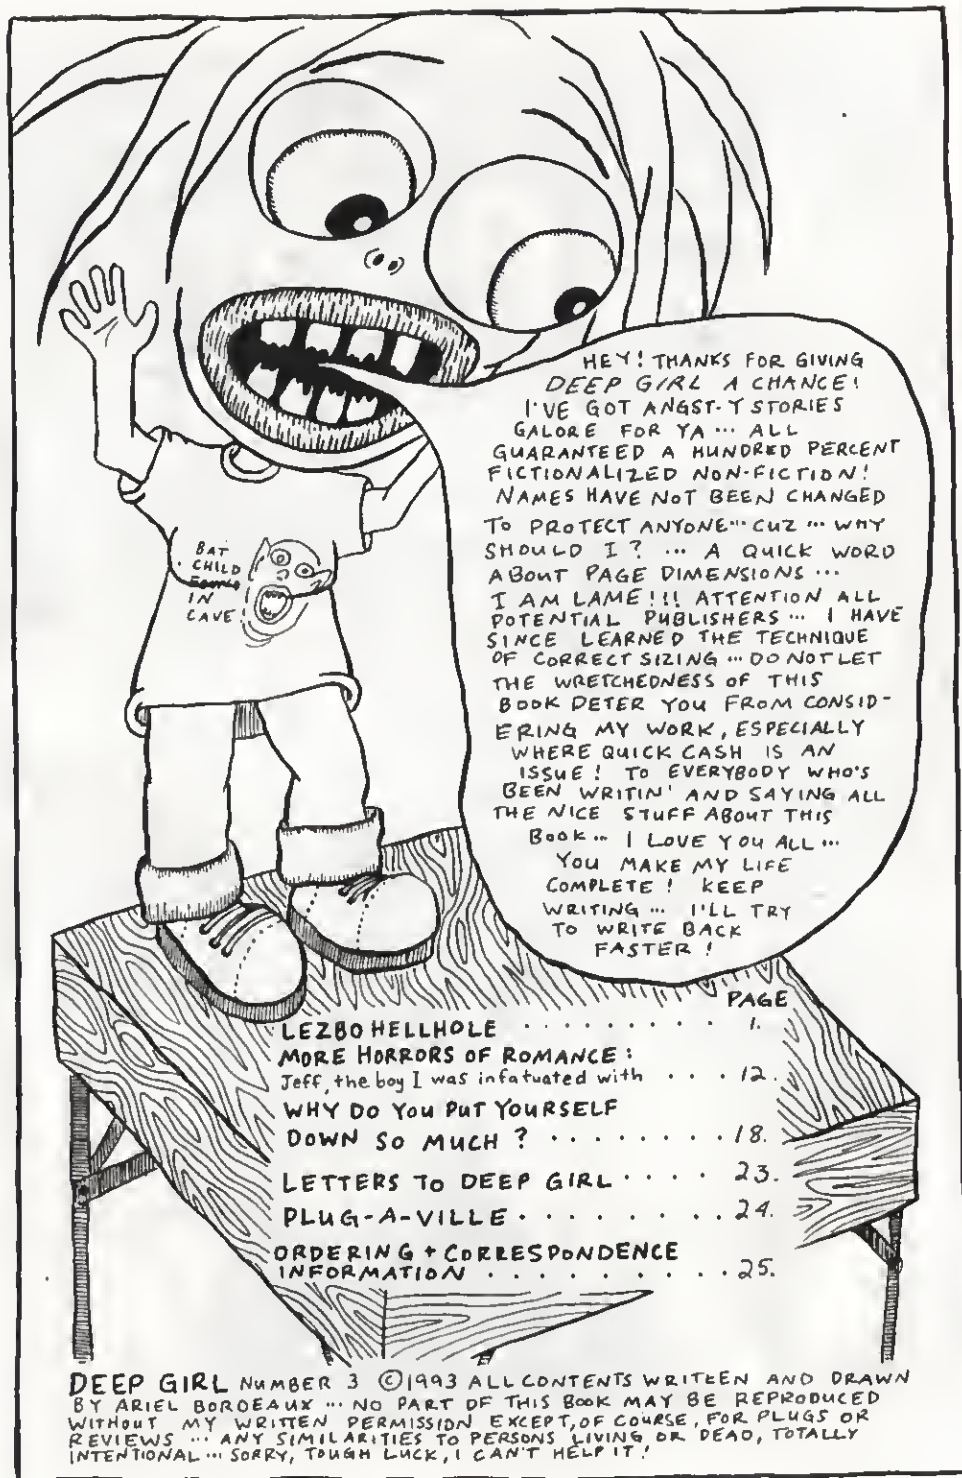 HEY! THANKS FOR GIVING
DEEP GIRL A CHANCE!
I'VE GOT ANGST-Y STORIES
GALORE FOR YA ... ALL
GUARANTEED A HUNDRED PERCENT
FICTIONALIZED NON-FICTION!
NAMES HAVE NOT BEEN CHANGED
TO PROTECT ANYONE ... CUZ ... WHY
SHOULD I? ... A QUICK WORD
ABOUT PAGE DIMENSIONS ...
I AM LAME!!! ATTENTION ALL
POTENTIAL PUBLISHERS ... I HAVE
SINCE LEARNED THE TECHNIQUE
OF CORRECT SIZING ... DO NOT LET
THE WRETCHEDNESS OF THIS
BOOK DETER YOU FROM CONSID-
ERING MY WORK, ESPECIALLY
WHERE QUICK CASH IS AN
ISSUE! TO EVERYBODY WHO'S
BEEN WRITIN' AND SAYING ALL
THE NICE STUFF ABOUT THIS
BOOK ... I LOVE YOU ALL ...
YOU MAKE MY LIFE
COMPLETE! KEEP
WRITING ... I'LL TRY
TO WRITE BACK
FASTER!
BAT
CHILD
FOUND
IN
CAVE
PAGE
LEZBO HELLHOLE . . . . . . . . . 1.
MORE HORRORS OF ROMANCE:
Jeff, the boy I was infatuated with . . . 12.
WHY DO YOU PUT YOURSELF
DOWN SO MUCH? . . . . . . . . 18.
LETTERS TO DEEP GIRL . . . . 23.
PLUG-A-VILLE . . . . . . . . . 24.
ORDERING + CORRESPONDENCE
INFORMATION . . . . . . . . . . 25.
DEEP GIRL NUMBER 3 ©1993 ALL CONTENTS WRITTEN AND DRAWN
BY ARIEL BORDEAUX ... NO PART OF THIS BOOK MAY BE REPRODUCED
WITHOUT MY WRITTEN PERMISSION EXCEPT, OF COURSE, FOR PLUGS OR
REVIEWS ... ANY SIMILARITIES TO PERSONS LIVING OR DEAD, TOTALLY
INTENTIONAL ... SORRY, TOUGH LUCK, I CAN'T HELP IT!